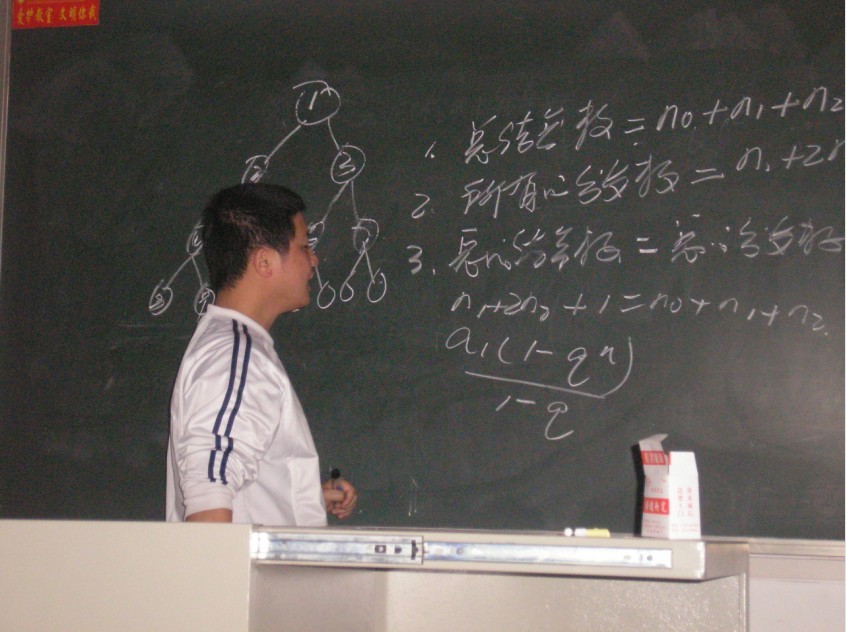 爱护教室 文明你我
1
2
3
1. 总结点数 = n0 + n1 + n2
2. 所有的分支数 = n1 + 2n
3. 总的结点数 = 总的分支数
n1+2n2 + 1 = n0 + n1 + n2
a1(1-q^n)
1-q